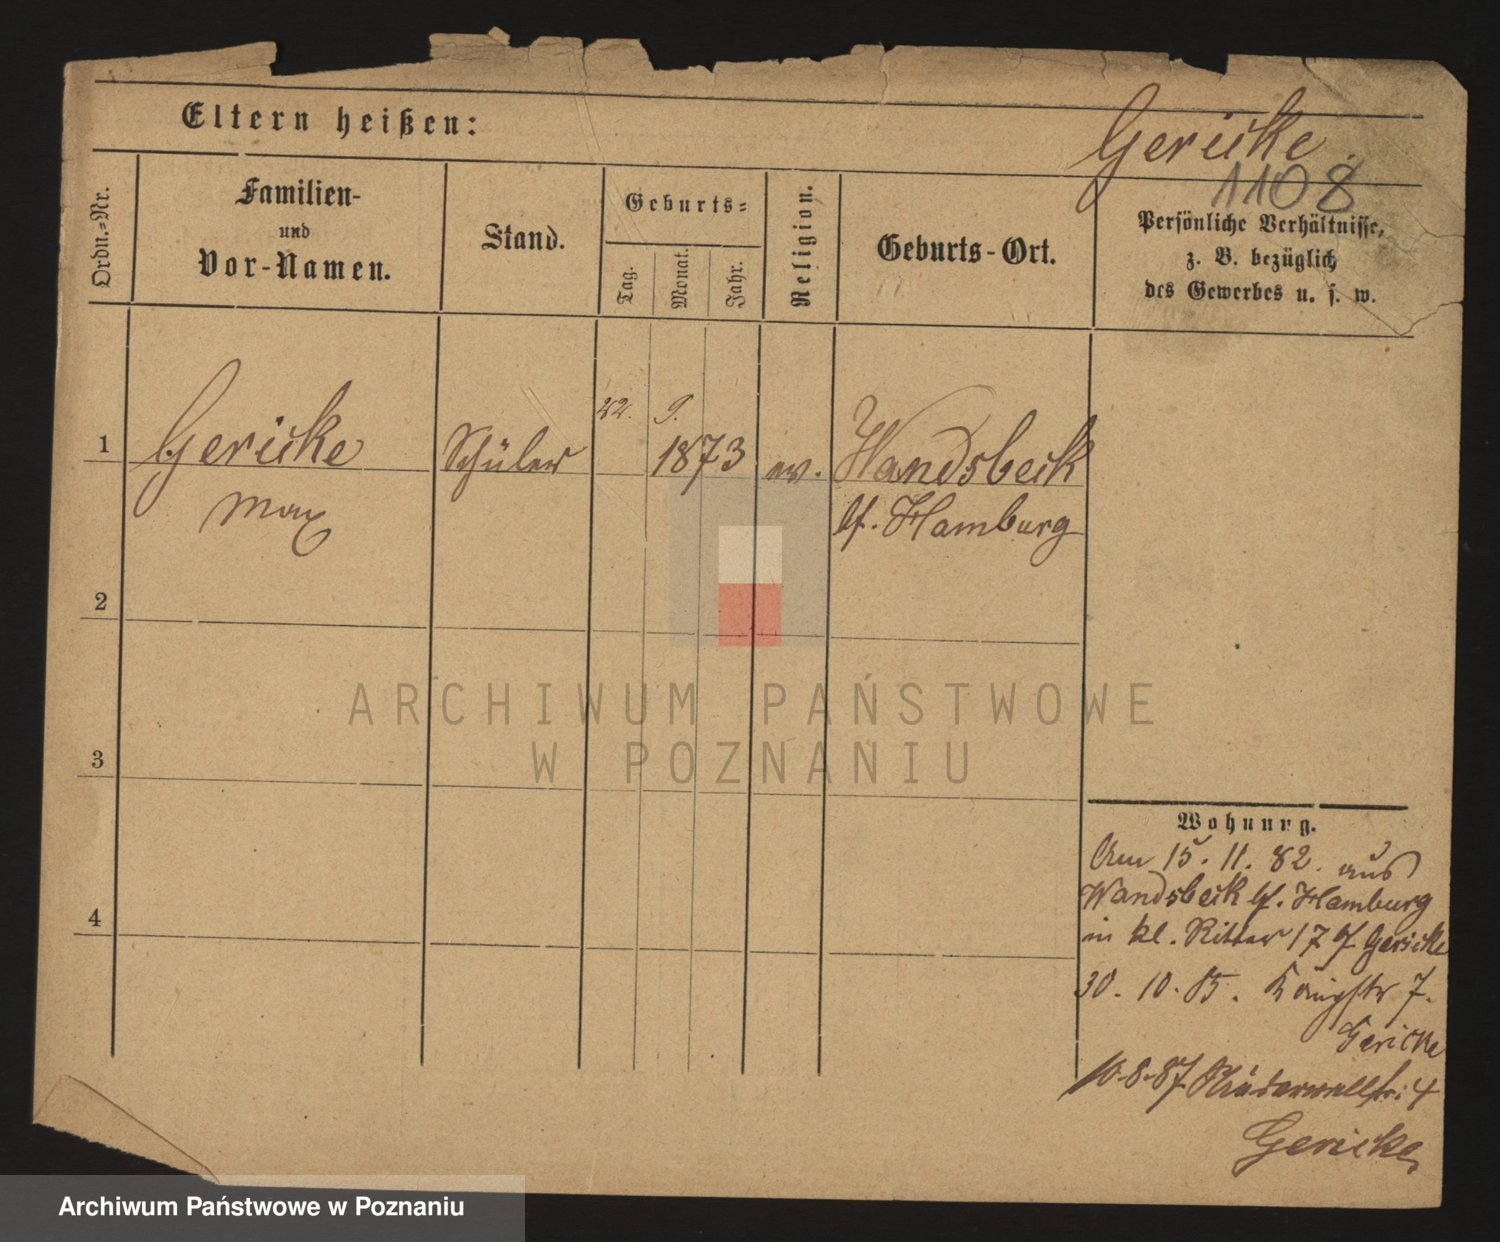 Eltern heißen:
Gericke
1108
Ordn.-Nr.
Familien-
und
Vor-Namen.
Stand.
Geburts-
Tag.
Monat.
Jahr.
Religion.
Geburts-Ort.
Persönliche Verhältnisse,
z. B. bezüglich
des Gewerbes u. s. w.
1
Gericke
Max
Schüler
22. 9.
1873
ev.
Wandsbeck
bf. Hamburg
2
3
4
Wohnung.
Am 15. 11. 82. aus
Wandsbeck bf. Hamburg
in kl. Ritter 17 bf Gericke
30. 10. 85. Königstr 7.
Gericke
10.8.87 Niederwallstr: 4
Gericke
ARCHIWUM PAŃSTWOWE
W POZNANIU
Archiwum Państwowe w Poznaniu